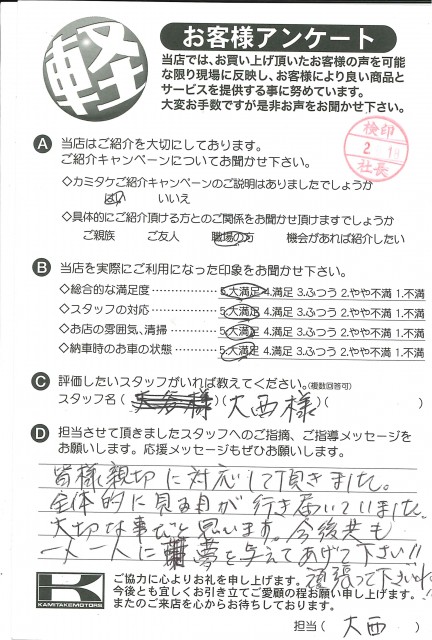 軽
お客様アンケート
当店では、お買い上げ頂いたお客様の声を可能
な限り現場に反映し、お客様により良い商品と
サービスを提供する事に努めています。
大変お手数ですが是非お声をお聞かせ下さい。
検印
社長
A 当店はご紹介を大切にしております。
ご紹介キャンペーンについてお聞かせ下さい。
◇カミタケご紹介キャンペーンのご説明はありましたでしょうか
はい いいえ
◇具体的にご紹介頂ける方とのご関係をお聞かせ頂けますでしょうか
ご親族 ご友人 職場の方 機会があれば紹介したい
B 当店を実際にご利用になった印象をお聞かせ下さい。
◇総合的な満足度 5.大満足 4.満足 3.ふつう 2.やや不満 1.不満
◇スタッフの対応 5.大満足 4.満足 3.ふつう 2.やや不満 1.不満
◇お店の雰囲気、清掃 5.大満足 4.満足 3.ふつう 2.やや不満 1.不満
◇納車時のお車の状態 5.大満足 4.満足 3.ふつう 2.やや不満 1.不満
C 評価したいスタッフがいれば教えてください。(複数回答可)
スタッフ名 ( )(大西様)( )
D 担当させて頂きましたスタッフへのご指摘、ご指導メッセージを
お願いします。応援メッセージもぜひお願いします。
皆様親切に対応して頂きました。
全体的に見る目が行き届いていました。
大切な事だと思います。今後共も
一人一人に夢を与えてあげて下さい!!
頑張って下さいね
K
KAMITAKEMOTORS
ご協力に心よりお礼を申し上げます。
今後とも宜しくお引き立てご愛顧の程お願い申し上げます。
またのご来店を心からお待ちしております。
担当( 大西 )